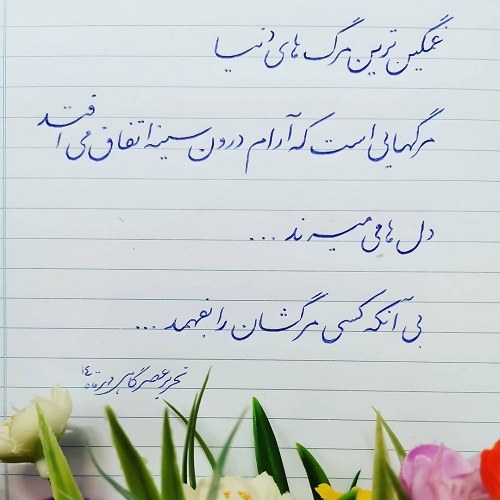 غمگین ترین مرگ های دنیا
مرگهایی است که آرام درون سینه اتفاق می افتد
دل ها می میرند ...
بی آنکه کسی مرگشان را بفهمد ...
تحریر عصرگاهی